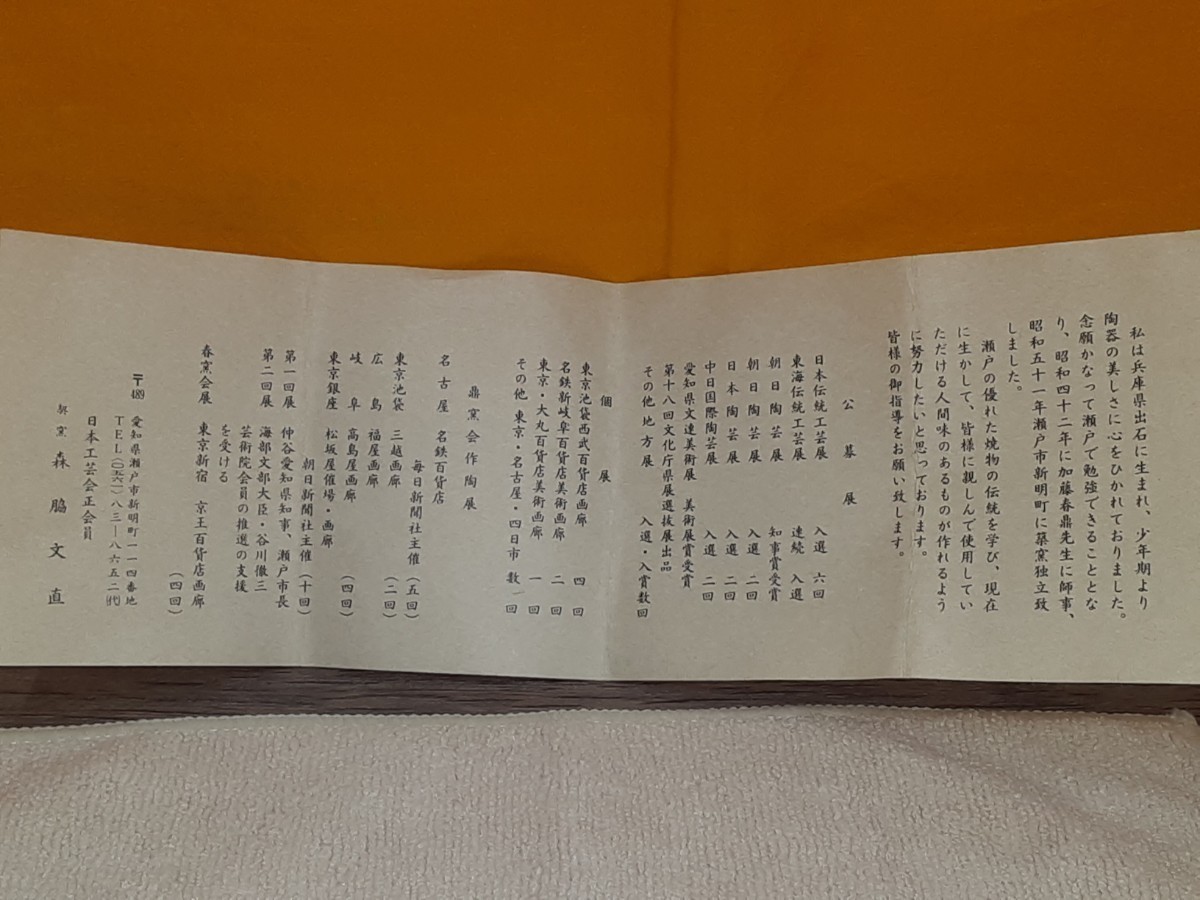 私は兵庫県出石に生まれ、少年期より
陶器の美しさに心をひかれておりました。
念願かなって瀬戸で勉強できることとな
り、昭和四十二年に加藤春鼎先生に師事、
昭和五十一年瀬戸市新明町に築窯独立致
しました。
瀬戸の優れた焼物の伝統を学び、現在
に生かして、皆様に親しんで使用してい
ただける人間味のあるものが作れるよう
に努力したいと思っております。
皆様の御指導をお願い致します。
公募展
日本伝統工芸展 入選 六回
東海伝統工芸展 連続 入選
朝日陶芸展 知事賞受賞
朝日陶芸展 入選 二回
日本陶芸展 入選 二回
中日国際陶芸展 入選 二回
愛知県文連美術展 美術展賞受賞
第十八回文化庁県展選抜展出品
その他 地方展 入選・入賞数回
個展
東京池袋西武百貨店画廊 四回
名鉄新岐阜百貨店美術画廊 二回
東京・大丸百貨店美術画廊 一回
その他 東京・名古屋・四日市 数回
鼎窯会作陶展
名古屋 名鉄百貨店
毎日新聞社主催(五回)
東京池袋 三越画廊 (二回)
広島 福屋画廊
岐阜 高島屋画廊 (四回)
東京銀座 松坂屋催場・画廊
朝日新聞社主催(十回)
第一回展 仲谷愛知県知事、瀬戸市長
第二回展 海部文部大臣・谷川徹三
芸術院会員の推選の支援
を受ける
春窯会展 東京新宿 京王百貨店画廊
(四回)
〒489 愛知県瀬戸市新明町一一四番地
TEL(〇五六一)八三―八六五二㈹
日本工芸会正会員
窯 森脇文直